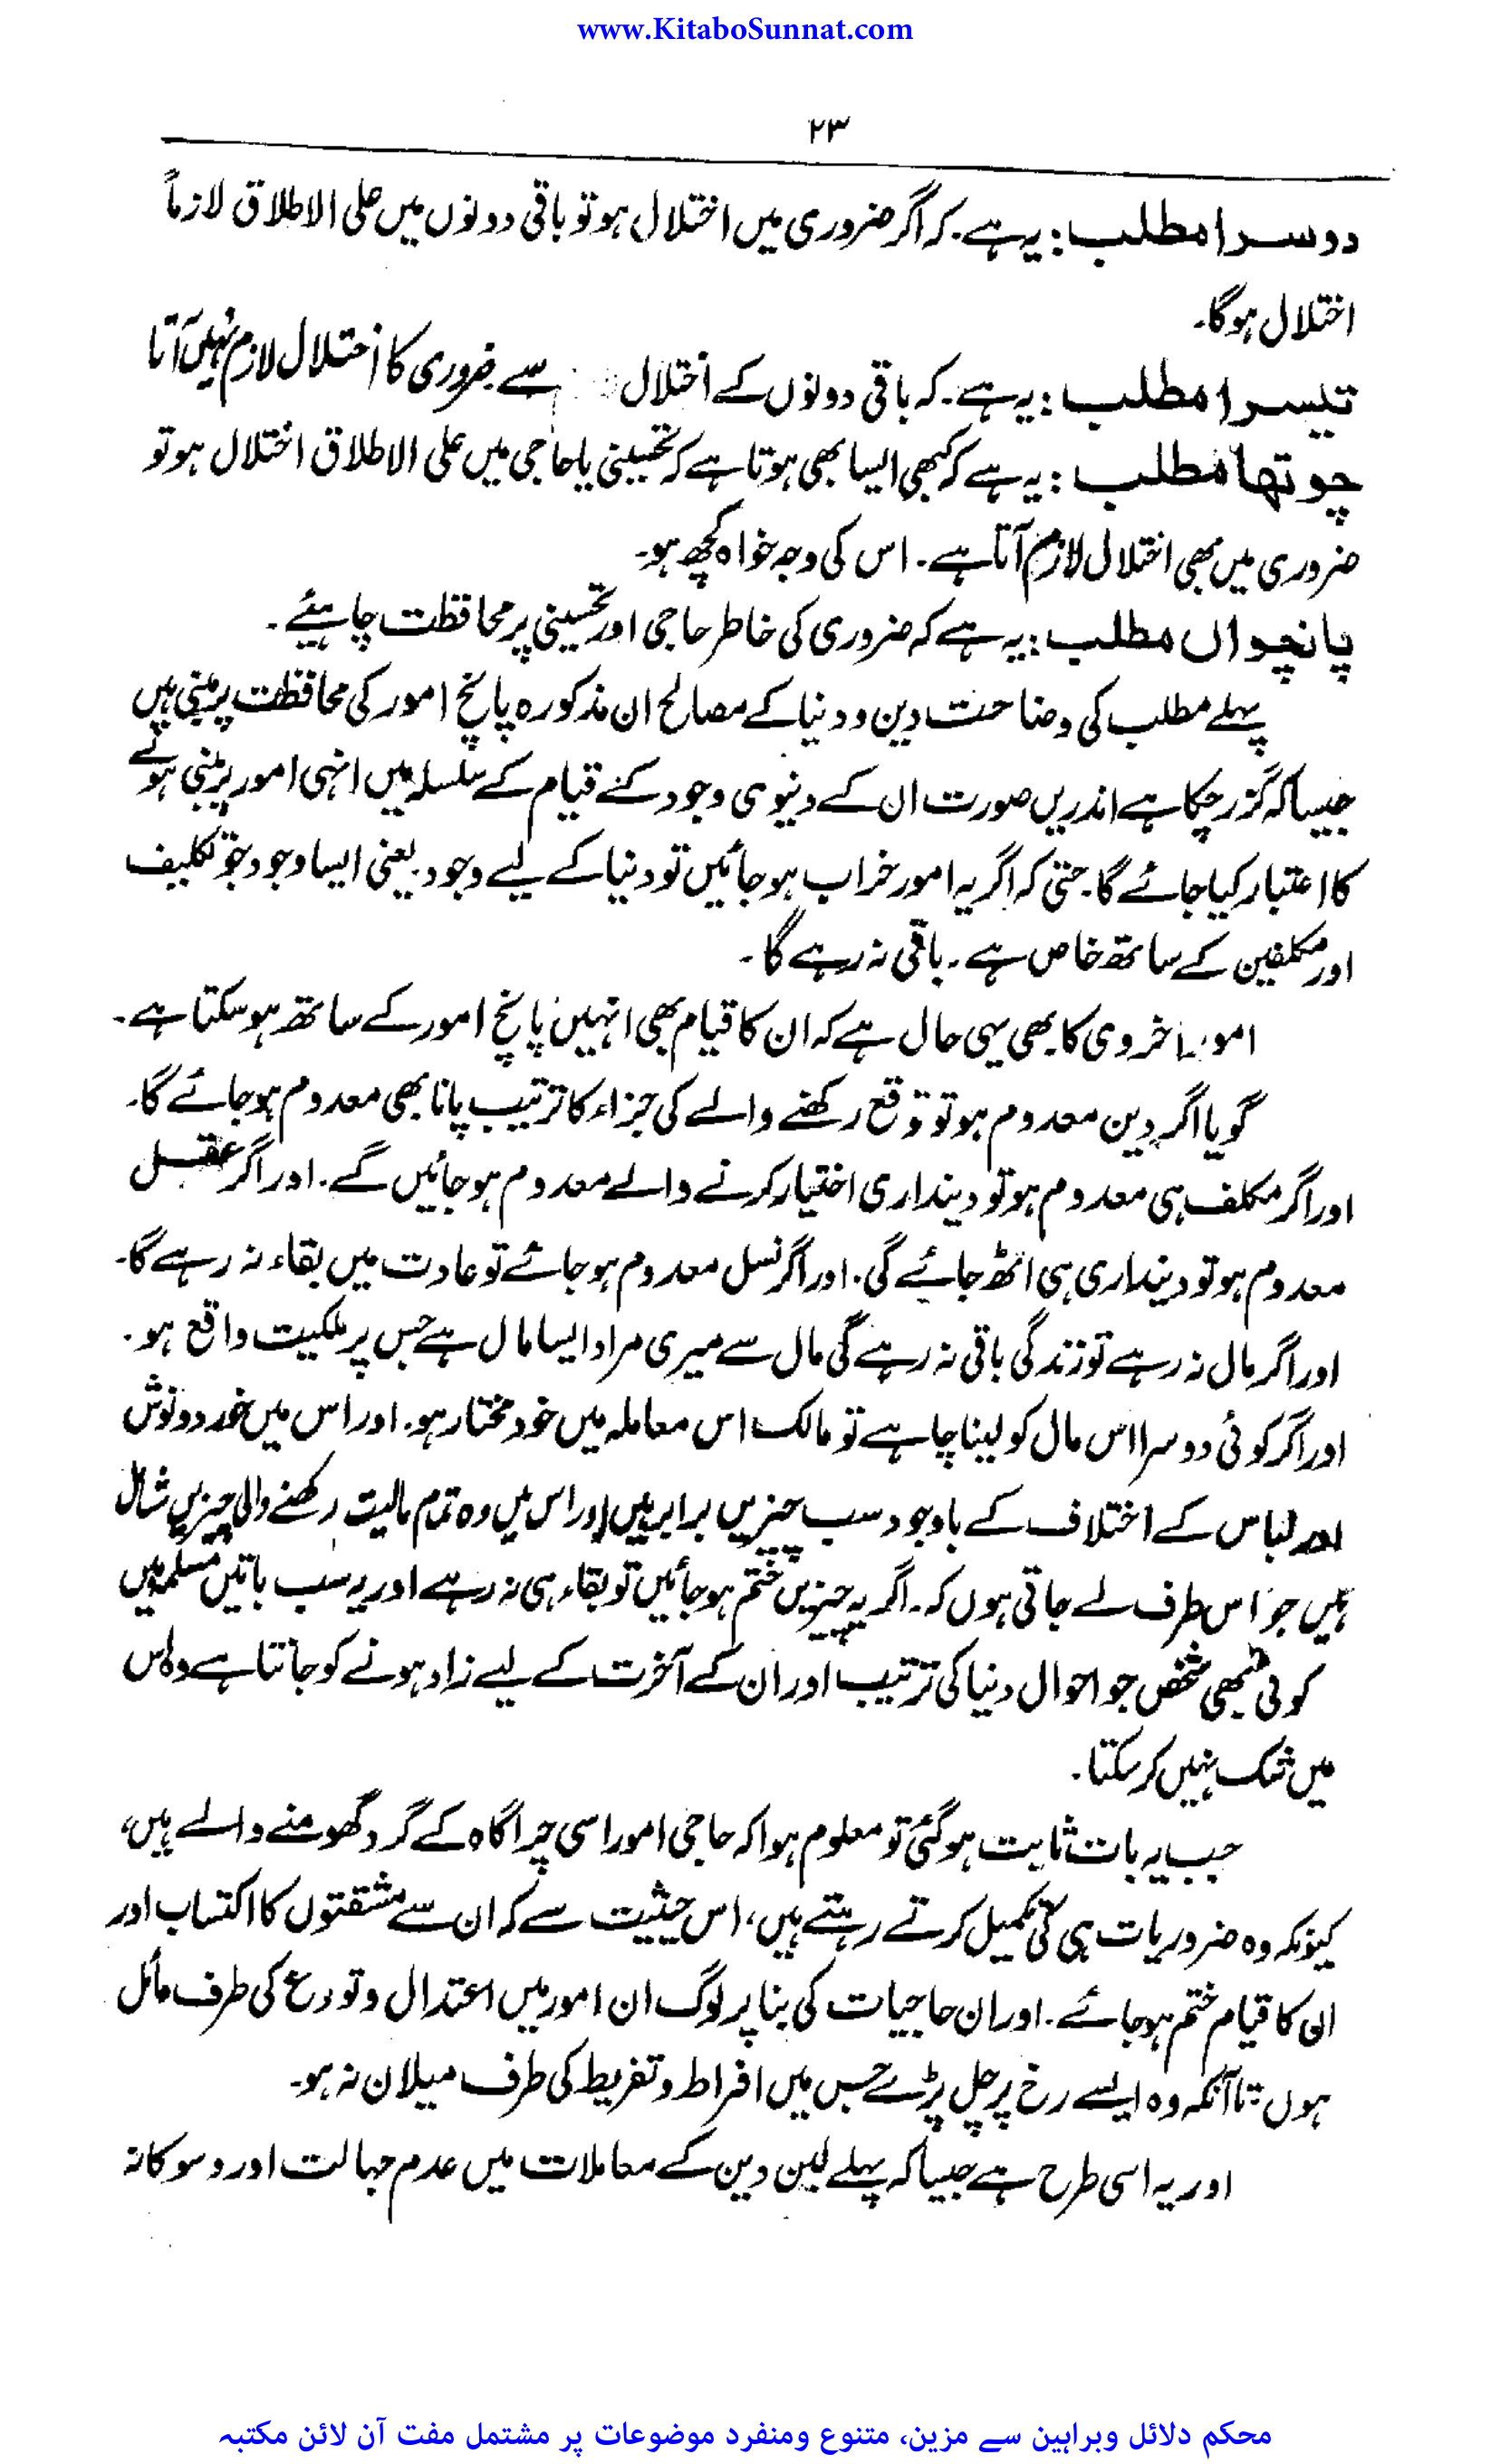 www.KitaboSunnat.com
۲۳
دوسرا مطلب: یہ ہے۔ کہ اگر ضروری میں اختلال ہو تو باقی دونوں میں علی الاطلاق لازماً
اختلال ہوگا۔
تیسرا مطلب: یہ ہے۔ کہ باقی دونوں کے اختلال سے ضروری کا اختلال لازم نہیں آتا
چوتھا مطلب: یہ ہے کہ کبھی ایسا بھی ہوتا ہے کہ تحسینی یا حاجی میں علی الاطلاق اختلال ہو تو
ضروری میں بھی اختلال لازم آتا ہے۔ اس کی وجہ خواہ کچھ ہو۔
پانچواں مطلب: یہ ہے کہ ضروری کی خاطر حاجی اور تحسینی پر محافظت چاہیئے۔
پہلے مطلب کی وضاحت دین و دنیا کے مصالح ان مذکورہ پانچ امور کی محافظت پر مبنی ہیں
جیسا کہ گزر چکا ہے اندریں صورت ان کے دنیوی وجود کے قیام کے سلسلہ میں انہی امور پر مبنی ہونے
کا اعتبار کیا جائے گا۔ حتی کہ اگر یہ امور خراب ہو جائیں تو دنیا کے لیے وجود۔ یعنی ایسا وجود جو تکلیف
اور مکلفین کے ساتھ خاص ہے۔ باقی نہ رہے گا۔
امور اخروی کا بھی یہی حال ہے کہ ان کا قیام بھی انہیں پانچ امور کے ساتھ ہو سکتا ہے۔
گویا اگر دین معدوم ہو تو توقع رکھنے والے کی جزاء کا ترتیب پانا بھی معدوم ہو جائے گا۔
اور اگر مکلف ہی معدوم ہو تو دینداری اختیار کرنے والے معدوم ہو جائیں گے۔ اور اگر عقل
معدوم ہو تو دینداری ہی اٹھ جائے گی۔ اور اگر نسل معدوم ہو جائے تو عادت میں بقاء نہ رہے گا۔
اور اگر مال نہ رہے تو زندگی باقی نہ رہے گی مال سے میری مراد ایسا مال ہے جس پر ملکیت واقع ہو۔
اور اگر کوئی دوسرا اس مال کو لینا چاہے تو مالک اس معاملہ میں خود مختار ہو۔ اور اس میں خورد و نوش
اور لباس کے اختلاف کے باوجود سب چیزیں برابر ہیں اور اس میں وہ تمام مالیت رکھنے والی چیزیں شامل
ہیں جو اس طرف لے جاتی ہوں کہ۔ اگر یہ چیزیں ختم ہو جائیں تو بقاء ہی نہ رہے اور یہ سب باتیں مسلمہ ہیں
کوئی بھی شخص جو احوال دنیا کی ترتیب اور ان کے آخرت کے لیے زاد ہونے کو جانتا ہے وہ اس
میں شک نہیں کر سکتا۔
جب یہ بات ثابت ہو گئی تو معلوم ہوا کہ حاجی امور اسی چراگاہ کے گرد گھومنے والے ہیں،
کیونکہ وہ ضروریات ہی کی تکمیل کرتے رہتے ہیں، اس حیثیت سے کہ ان سے مشقتوں کا اکتساب اور
ان کا قیام ختم ہو جائے۔ اور ان حاجیات کی بنا پر لوگ ان امور میں اعتدال و تورع کی طرف مائل
ہوں تاآنکہ وہ ایسے رخ پر چل پڑے جس میں افراط و تفریط کی طرف میلان نہ ہو۔
اور یہ اسی طرح ہے جیسا کہ پہلے لین دین کے معاملات میں عدم جہالت اور دسوکا نہ
محکم دلائل وبراہین سے مزین، متنوع ومنفرد موضوعات پر مشتمل مفت آن لائن مکتبہ